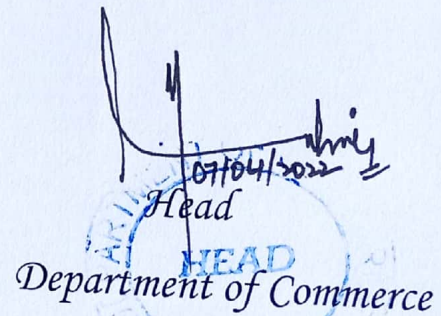 07/04/2022
Head
HEAD
Department of Commerce